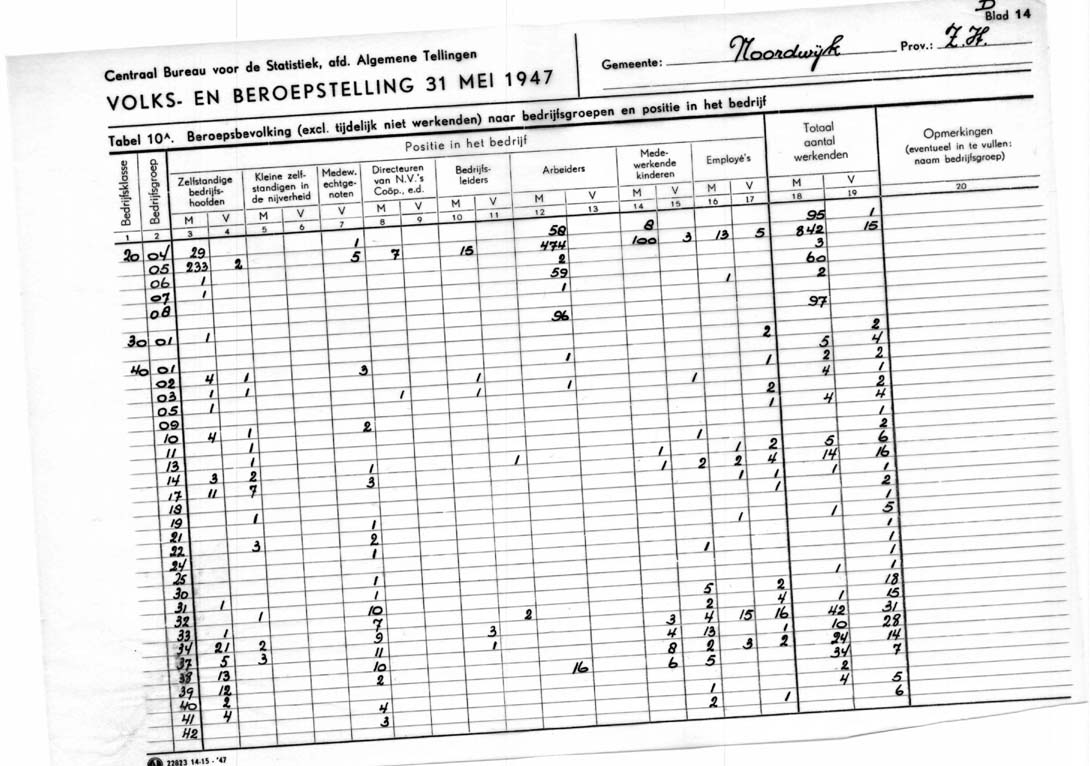 D
Blad 14
Centraal Bureau voor de Statistiek, afd. Algemene Tellingen
Gemeente: Noordwijk Prov.: Z.H.
VOLKS- EN BEROEPSTELLING 31 MEI 1947
Tabel 10A. Beroepsbevolking (excl. tijdelijk niet werkenden) naar bedrijfsgroepen en positie in het bedrijf
Bedrijfsklasse
Bedrijfsgroep
Positie in het bedrijf
Zelfstandige
bedrijfs-
hoofden
Kleine zelf-
standigen in
de nijverheid
Medew.
echtge-
noten
Directeuren
van N.V.'s
Coöp., e.d.
Bedrijfs-
leiders
Arbeiders
Mede-
werkende
kinderen
Employé's
Totaal
aantal
werkenden
Opmerkingen
(eventueel in te vullen:
naam bedrijfsgroep)
M V M V V M V M V M V M V M V M V
1 2 3 4 5 6 7 8 9 10 11 12 13 14 15 16 17 18 19 20
20 04 29 1 58 8 95 1
05 233 2 5 7 15 474 100 3 13 5 842 15
06 1 2 3
07 1 59 60
08 1 1 2
30 01 1 96 97
40 01 2 2
02 4 1 3 1 5 4
03 1 1 1 1 2 2
05 1 1 1 1 1 4 1
09 2 2
10 4 1 2 1 4 4
11 1 1
13 1 1 2
14 3 2 1 1 1 1 2 5 6
17 11 7 3 1 2 2 4 14 16
18 1 1 1 1
19 1 1 2
21 1 1
22 3 2 1 1 5
24 1 1
25 1
30 1 1
31 1 1 1
32 1 10 5 2 18
33 1 7 2 4 1 15
34 21 2 9 2 3 4 15 16 42 31
37 5 3 11 3 4 13 1 10 28
38 13 10 1 8 2 3 2 24 14
39 12 2 16 6 5 34 7
40 2 2
41 4 4 1 4 5
42 3 2 1 6
22823 14-15 - '47